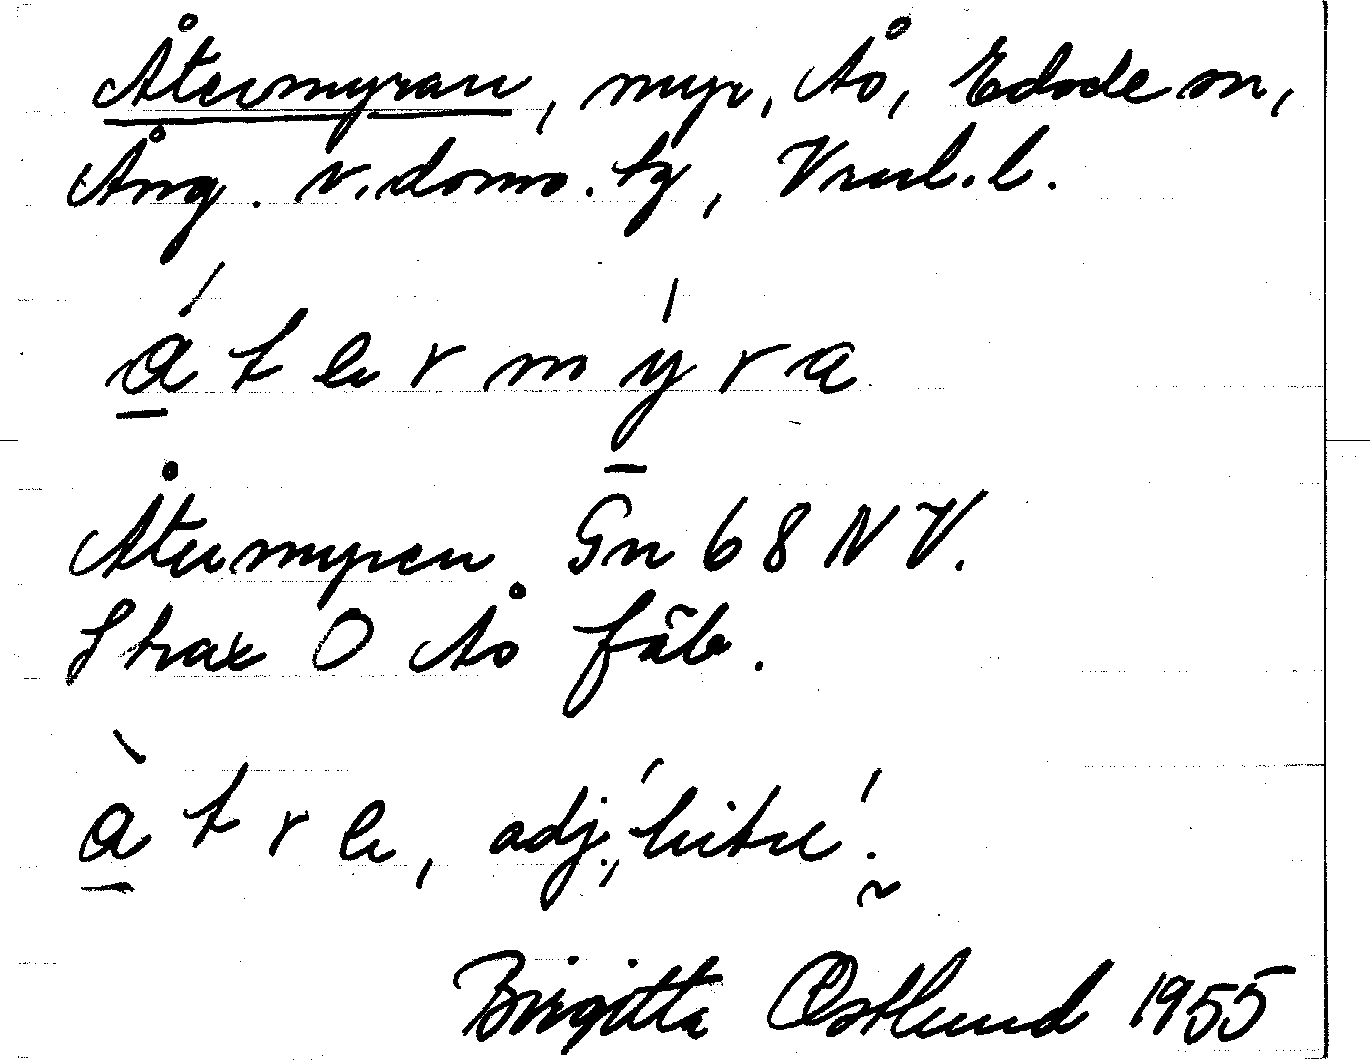 Återmyran, myr, Ås, Edsele sn,
Ång. v. doms. tg, Vbul. l.
á t e r m ý r a
Återmyren Gn 68 NV.
Strax O Ås fäb.
à t r e, adj., 'hitre'.
Birgitta Östlund 1955